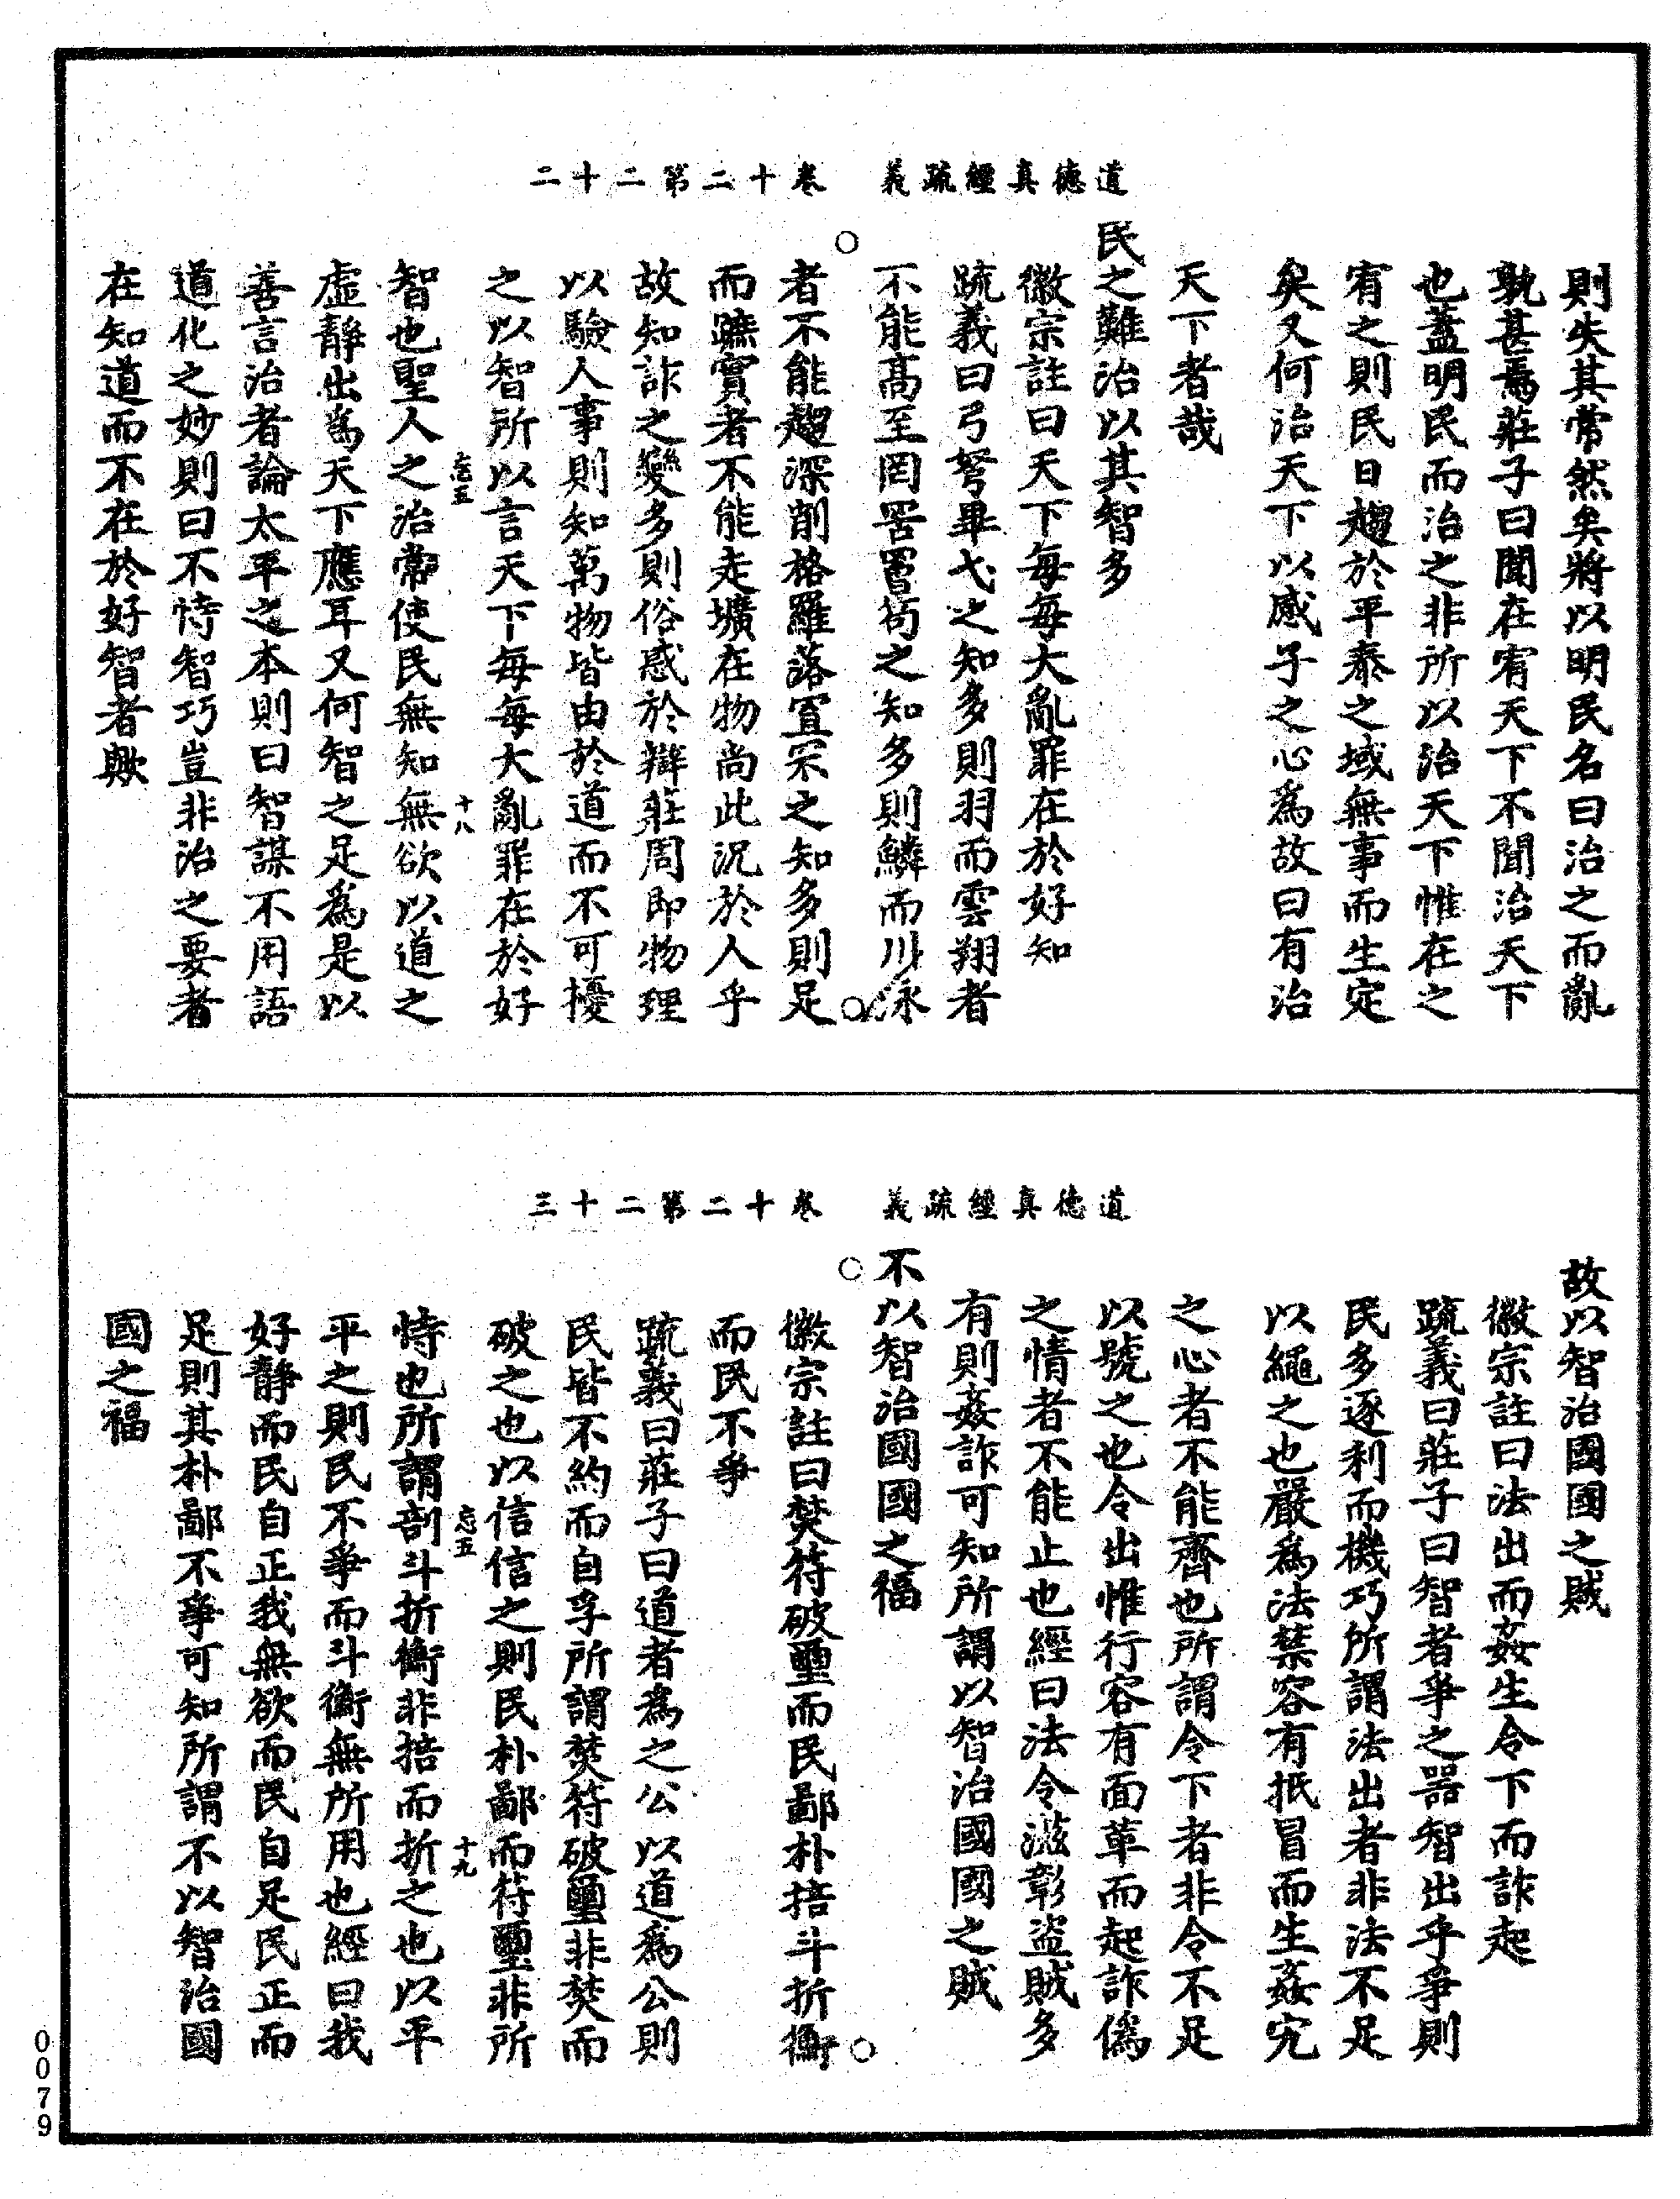 道德真經疏義　卷十二第二十二
則失其常然矣將以明民名曰治之而亂
孰甚焉莊子曰聞在宥天下不聞治天下
也蓋明民而治之非所以治天下惟在之
宥之則民日趨於平泰之域無事而生定
矣又何治天下以感子之心為故曰有治
天下者哉
民之難治以其智多
徽宗註曰天下每每大亂罪在於好知
疏義曰弓弩畢弋之知多則羽而雲翔者
不能高至罔罟罾笱之知多則鱗而川泳
者不能趨深削格羅落罝罘之知多則足
而蹠實者不能走壙在物尚此況於人乎
故知詐之變多則俗惑於辯莊周即物理
以驗人事則知萬物皆由於道而不可擾
之以智所以言天下每每大亂罪在於好
忘五　十八
智也聖人之治常使民無知無欲以道之
虛靜出為天下應耳又何智之足為是以
善言治者論太平之本則曰智謀不用語
道化之妙則曰不恃智巧豈非治之要者
在知道而不在於好智者歟
道德真經疏義　卷十二第二十三
故以智治國國之賊
徽宗註曰法出而姦生令下而詐起
疏義曰莊子曰智者爭之器智出乎爭則
民多逐利而機巧所謂法出者非法不足
以繩之也嚴為法禁容有抵冒而生姦宄
之心者不能齊也所謂令下者非令不足
以號之也令出惟行容有面革而起詐偽
之情者不能止也經曰法令滋彰盜賊多
有則姦詐可知所謂以智治國國之賊
不以智治國國之福
徽宗註曰焚符破璽而民鄙朴掊斗折衡
而民不爭
疏義曰莊子曰道者為之公以道為公則
民皆不約而自孚所謂焚符破璽非焚而
破之也以信信之則民朴鄙而符璽非所
忘五　十九
恃也所謂剖斗折衡非掊而折之也以平
平之則民不爭而斗衡無所用也經曰我
好靜而民自正我無欲而民自足民正而
足則其朴鄙不爭可知所謂不以智治國
國之福
00079